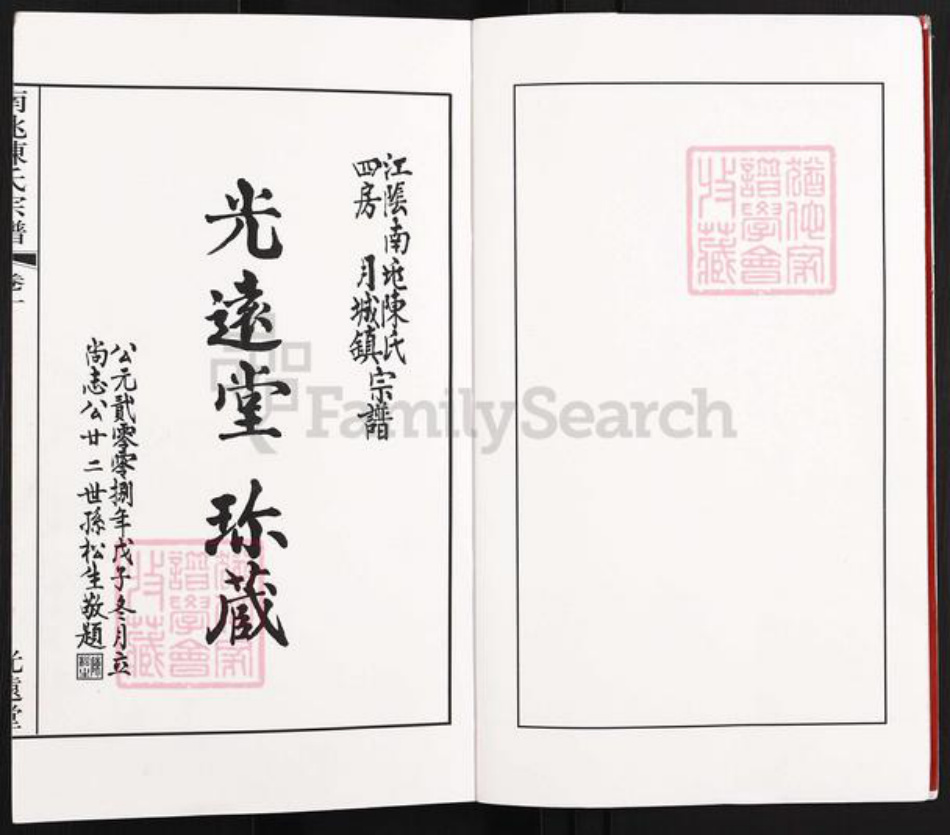 猶他家
譜學會
收藏
江陰南兆陳氏
四房 月城鎮
宗譜
光遠堂 珎蔵
公元貳零零捌年戊子冬月立
尚志公廿二世孫松生敬題
猶他家
譜學會
收藏
南兆陳氏宗譜
卷一
光遠堂
FamilySearch